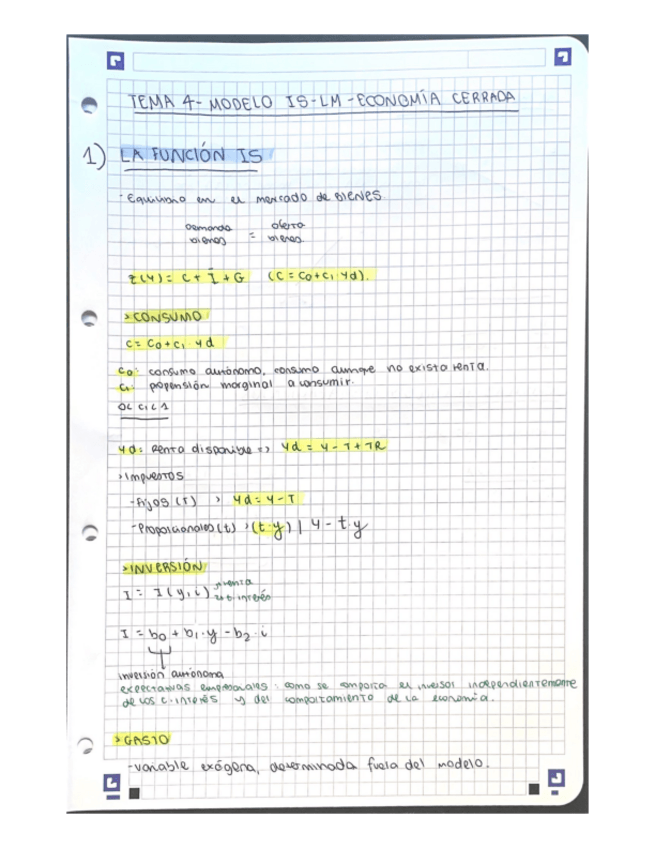 TEMA 4 - MODELO IS-LM - ECONOMÍA CERRADA
1) LA FUNCIÓN IS
- Equilibrio en el mercado de BIENES.
Demanda bienes = oferta bienes
Z(Y) = C + Ī + G (C = C0 + C1 · Yd).
> CONSUMO
C = C0 + C1 Yd
C0: consumo autónomo, consumo aunque no exista renta.
C1: propensión marginal a consumir.
0 < C1 < 1
Yd: Renta disponible => Yd = Y - T + TR
> Impuestos
- Fijos (T) > Yd = Y - T
- Proporcionales (t) > (t·y) | Y - t·y
> INVERSIÓN
I = I(y, i) renta
I = b0 + b1·y - b2·i
inversión autónoma
expectativas empresariales: como se comporta el inversor independientemente
de los t. interés y del comportamiento de la economía.
> GASTO
- variable exógena, determinada fuera del modelo.